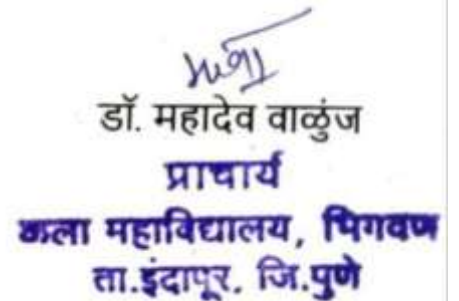 डॉ. महादेव वाळुंज
प्राचार्य
कला महाविद्यालय, भिगवण
ता.इंदापूर. जि.पुणे